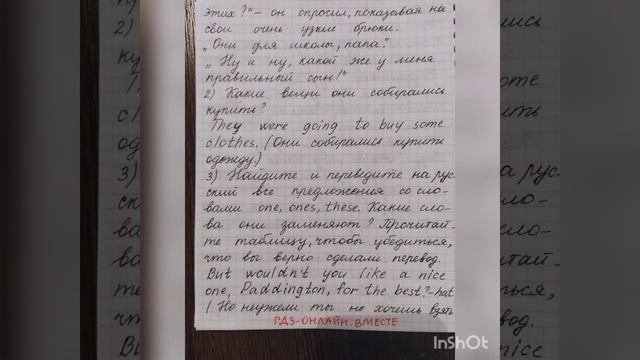 этих?"— он спросил, показывая на
свои очень узкие брюки.
„Они для школы, папа."
„Ну и ну, какой же у меня
правильный сын!"
2) Какие вещи они собирались
купить?
They were going to buy some
clothes. (Они собирались купить
одежду.)
3) Найдите и переведите на рус-
ский все предложения со сло-
вами one, ones, these. Какие сло-
ва они заменяют? Прочитай-
те таблицу, чтобы убедиться,
что вы верно сделали перевод.
But wouldn't you like a nice
one, Paddington, for the best?-hat
(Но неужели ты не хочешь взять
ГДЗ-ОНЛАЙН. ВМЕСТЕ
InShOt